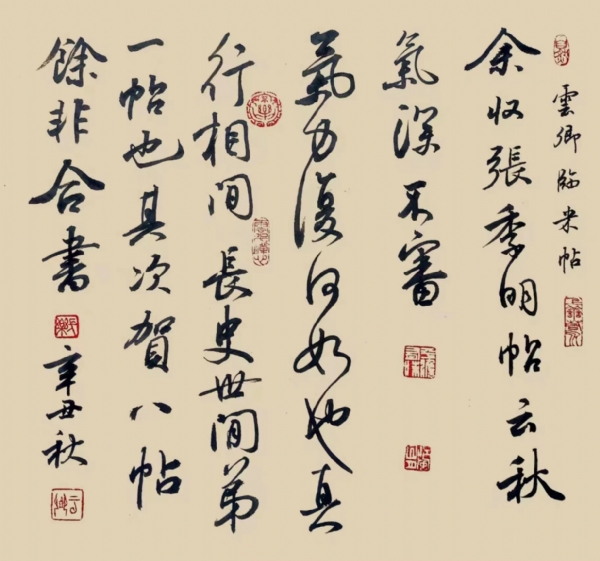 雲卿臨米帖
余収張季明帖云秋
氣深不審
氣力復何如也真
行相間長史世間第
一帖也其次賀八帖
餘非合書
辛丑秋